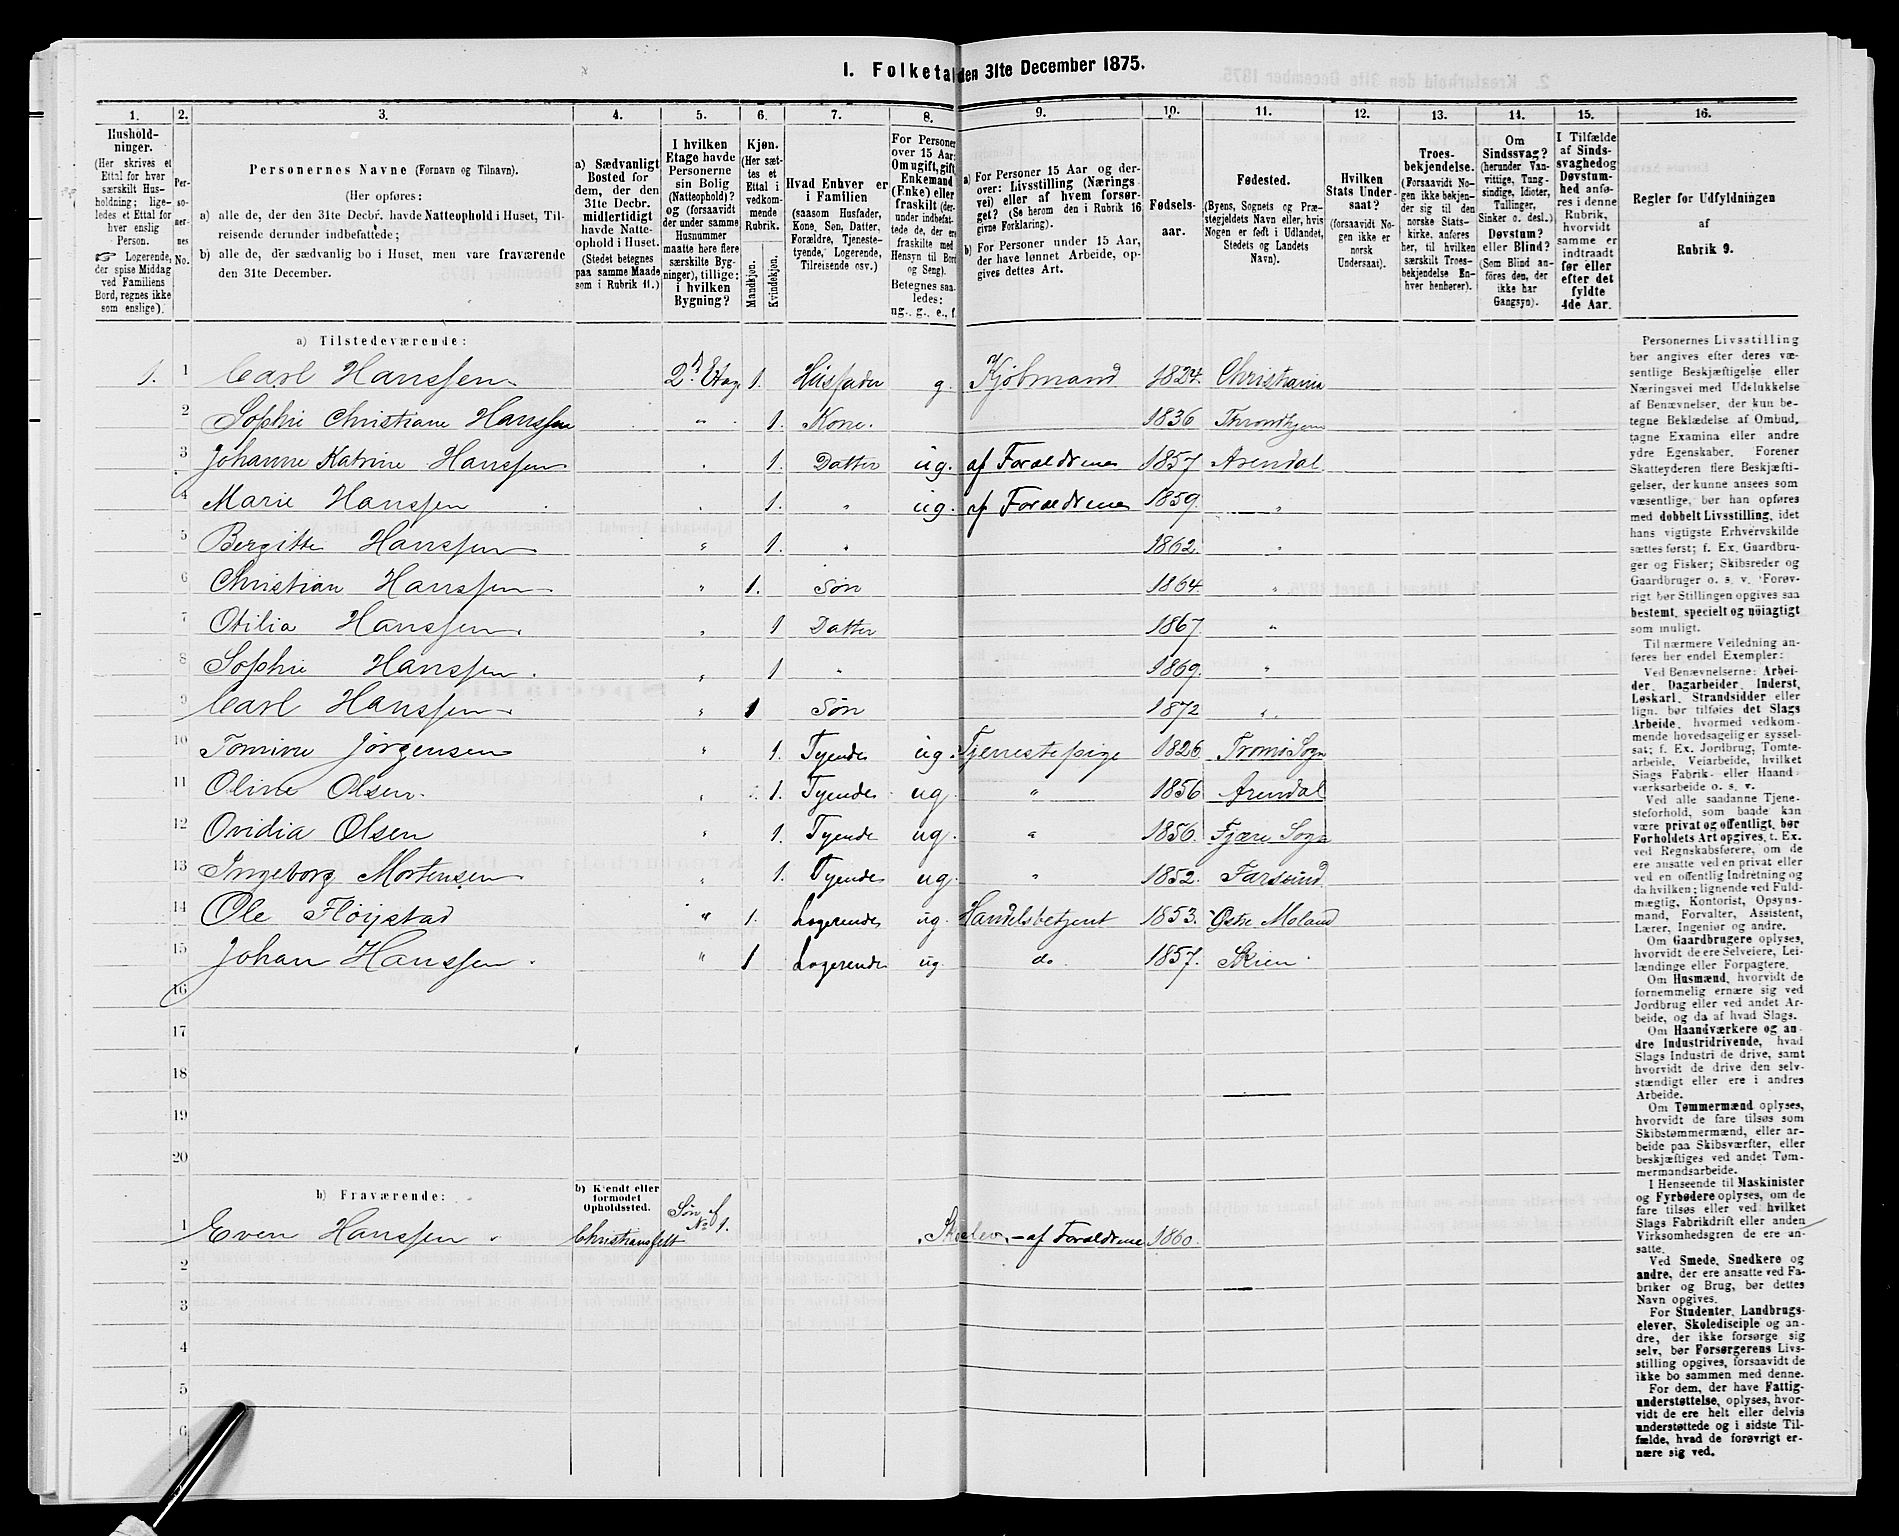 1. Folketal den 31te December 1875.
1. 2. 3. 4. 5. 6. 7. 8. 9. 10. 11. 12. 13. 14. 15. 16.
Hushold-
ninger.
(Her skrives et
Ettal for hver
særskilt Hus-
holdning; lige-
ledes et Ettal for
hver enslig
Person.
☞ Logerende,
der spise Middag
ved Familiens
Bord, regnes ikke
som enslige).
Per-
so-
ner-
nes
No.
Personernes Navne (Fornavn og Tilnavn).
(Her opføres:
a) alle de, der den 31te Decbr. havde Natteophold i Huset, Til-
reisende derunder indbefattede;
b) alle de, der sædvanlig bo i Huset, men vare fraværende
den 31te December.
a) Sædvanligt
Bosted for
dem, der den
31te Decbr.
midlertidigt
havde Natte-
ophold i Huset.
(Stedet betegnes
paa samme Maade
som i Rubrik 11.)
I hvilken
Etage havde
Personerne
sin Bolig
(Natteophold)?
og (forsaavidt
der under samme
Husnummer
maatte høre flere
særskilte Byg-
ninger), tillige:
i hvilken
Bygning?
Kjøn.
(Her sæt-
tes et
Ettal i
vedkom-
mende
Rubrik.
Mandkjøn.
Kvindekjøn.
Hvad Enhver er
i Familien
(saasom Husfader,
Kone, Søn, Datter,
Forældre, Tjeneste-
tyende, Logerende,
Tilreisende osv.)
For Personer
over 15 Aar:
Om ugift, gift,
Enkemand
(Enke) eller
fraskilt (der-
under indbefat-
tede de, der ere
fraskilte med
Hensyn til Bord
og Seng).
Betegnes saa-
ledes:
ug., g., e., f.
a) For Personer 15 Aar og der-
over: Livsstilling (Nærings-
vei) eller af hvem forsør-
get? (Se herom den i Rubrik 16
givne Forklaring).
b) For Personer under 15 Aar,
der have lønnet Arbeide, op-
gives dettes Art.
Fødsels-
aar.
Fødested.
(Byens, Sognets og Præ-
stegjeldets Navn eller, hvis
Nogen er født i Udlandet,
Stedets og Landets
Navn).
Hvilken
Stats Under-
saat?
(forsaavidt No-
gen ikke er
norsk
Undersaat).
Troes-
bekjendelse.
(Forsaavidt No-
gen ikke bekjen-
der sig til den
norske Stats-
kirke, anføres
her, til hvilken
særskilt Troes-
bekjendelse En-
hver henhører).
Om
Sindssvag?
(herunder Van-
vittige, Tung-
sindige, Idioter,
Tullinger,
Sinker o. desl.)
Døvstum?
eller Blind?
(Som Blind an-
føres den, der
ikke har
Gangsyn).
I Tilfælde
af Sinds-
svaghed og
Døvstum-
hed anfø-
res i denne
Rubrik,
hvorvidt
samme er
indtraadt
før eller
efter det
fyldte
4de Aar.
Regler for Udfyldningen
af
Rubrik 9.
a) Tilstedeværende:
1. 1 Carl Hanssen 2d Etage 1. Husfader g. Kjøbmand 1824. Christiania
2 Sophie Christiane Hanssen " 1. Kone. 1836 Throndhjem
3 Johanne Katrine Hanssen " 1. Datter ug. af Forældrene 1857. Arendal
4 Marie Hanssen 1. " ug. af Forældrene 1859. "
5 Bergitte Hanssen " 1. " 1862. "
6 Christian Hanssen " 1. Søn 1864. "
7 Otilia Hanssen. " 1 Datter 1867. "
8 Sophie Hanssen. " 1 " 1869. "
9 Carl Hanssen " 1 Søn 1872 "
10 Tomine Jørgensen " 1. Tyende ug. Tjenestepige 1826 Tromø Sogn
11 Oline Olsen. " 1. Tyende ug " 1856 Arendal
12 Ovidia Olsen " 1. Tyende ug. " 1856. Fjære Sogn
13 Ingeborg Mortensen " 1. Tyende ug. " 1852. Farsund
14 Ole Fløistad " 1. Logerende ug. Handelsbetjent 1853. Østre Moland
15 Johan Hanssen. " 1 Logerende ug. do. 1857. Skien.
16
17
18
19
20
b) Fraværende:
b) Kjendt eller
formodet
Opholdssted.
1 Even Hanssen. Christiansfelt Søn af No 1. Skoleelev. - af Forældrene 1860.
2
3
4
5
6
Personernes Livsstilling
bør angives efter deres væ-
sentlige Beskjæftigelse eller
Næringsvei med Udelukkelse
af Benævnelser, der kun be-
tegne Beklædelse af Ombud,
tagne Examina eller andre
ydre Egenskaber. Forener
Skatteyderen flere Beskjæfti-
gelser, der kunne ansees som
væsentlige, bør han opføres
med dobbelt Livsstilling, idet
hans vigtigste Erhvervskilde
sættes først; f. Ex. Gaardbru-
ger og Fisker; Skibsreder og
Gaardbruger o. s. v. Forøv-
rigt bør Stillingen opgives saa
bestemt, specielt og nøiagtigt
som muligt.
Til nærmere Veiledning an-
føres her endel Exempler:
Ved Benævnelserne: Arbei-
der, Dagarbeider, Inderst,
Løskarl, Strandsidder eller
lign. bør tilføies det Slags
Arbeide, hvormed vedkom-
mende hovedsagelig er syssel-
sat; f. Ex. Jordbrug, Tomte-
arbeide, Veiarbeide, hvilket
Slags Fabrik- eller Haand-
værksarbeide o. s. v.
Ved alle saadanne Tjene-
steforhold, som baade kan
være privat og offentligt, bør
Forholdets Art opgives, t. Ex.
ved Regnskabsførere, om de
ere ansatte ved en privat eller
ved en offentlig Indretning og
da hvilken; lignende ved Fuld-
mægtig, Kontorist, Opsyns-
mand, Forvalter, Assistent,
Lærer, Ingeniør og andre.
Om Gaardbrugere oplyses,
hvorvidt de ere Selveiere, Lei-
lændinge eller Forpagtere.
Om Husmænd, hvorvidt de
fornemmelig ernære sig ved
Jordbrug eller ved andet Ar-
beide, og da af hvad Slags.
Om Haandværkere og an-
dre Industridrivende, hvad
Slags Industri de drive, samt
hvorvidt de drive den selv-
stændigt eller ere i andres
Arbeide.
Om Tømmermænd oplyses,
hvorvidt de fare tilsøs som
Skibstømmermænd, eller ar-
beide paa Skibsværfter, eller
beskjæftiges ved andet Tøm-
mermandsarbeide.
I Henseende til Maskinister
og Fyrbødere oplyses, om de
fare tilsøs eller ved hvilket
Slags Fabrikdrift eller anden
Virksomhedsgren de ere an-
satte.
Ved Smede, Snedkere og
andre, der ere ansatte ved Fa-
briker og Brug, bør dettes
Navn opgives.
For Studenter, Landbrugs-
elever, Skoledisciple og an-
dre, der ikke forsørge sig
selv, bør Forsørgerens Livs-
stilling opgives, forsaavidt de
ikke bo sammen med denne.
For dem, der have Fattig-
understøttelse, oplyses, hvor-
vidt de ere helt eller delvis
understøttede og i sidste Til-
fælde, hvad de forøvrigt er-
nære sig ved.